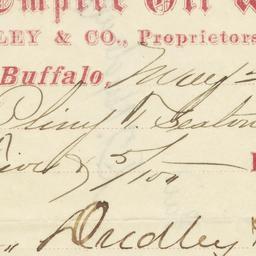 Empire Oil W
LEY & CO., Proprietors
Buffalo, May
Pliny T. Sexton
Five & 5/100
Dudley